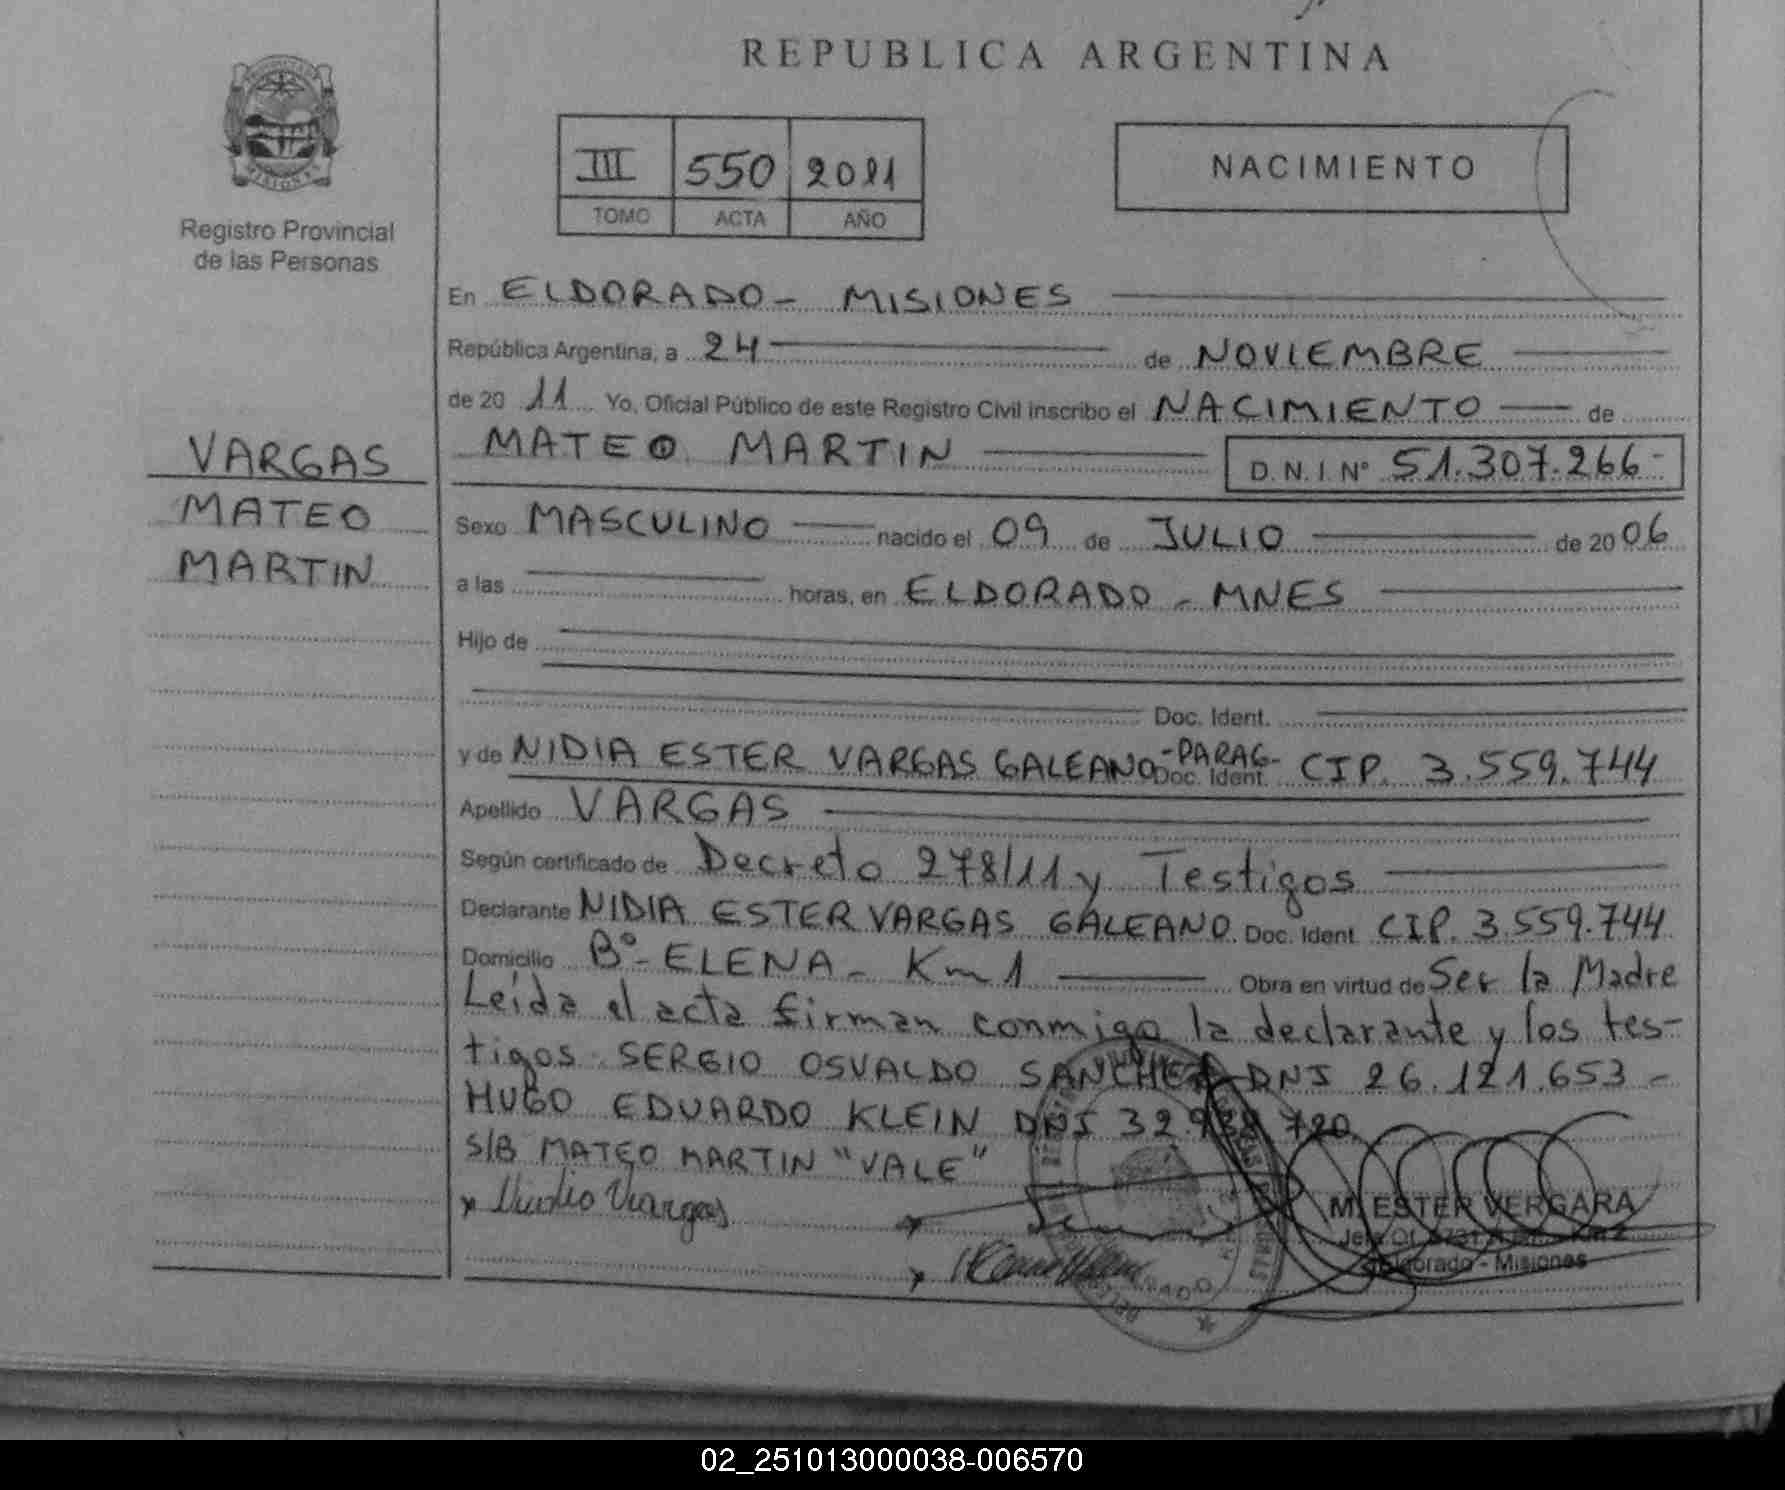 REPUBLICA ARGENTINA
PROVINCIA DE
MISIONES
Registro Provincial
de las Personas
III 550 2011
TOMO ACTA AÑO
NACIMIENTO
VARGAS
MATEO
MARTIN
En ELDORADO - MISIONES
República Argentina, a 24 de NOVIEMBRE
de 20 11 Yo, Oficial Público de este Registro Civil inscribo el NACIMIENTO de
MATEO MARTIN D.N.I. N° 51.307.266-
Sexo MASCULINO nacido el 09 de JULIO de 20 06
a las horas, en ELDORADO - MNES
Hijo de
Doc. Ident.
y de NIDIA ESTER VARGAS GALEANO -PARAG- Doc. Ident. CIP. 3.559.744
Apellido VARGAS
Según certificado de Decreto 278/11 y Testigos
Declarante NIDIA ESTER VARGAS GALEANO. Doc. Ident CIP. 3.559.744
Domicilio B°- ELENA - Km 1 Obra en virtud de Ser la Madre
Leída el acta firman conmigo la declarante y los tes-
tigos SERGIO OSVALDO SANCHEZ DNI 26.121.653 -
HUGO EDUARDO KLEIN DNI 720
S/B MATEO MARTIN "VALE"
Vargas
M. ESTER VERGARA
Eldorado - Misiones
02_251013000038-006570